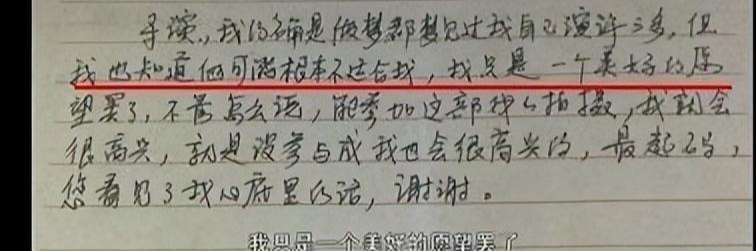 导演,我的确是做梦都梦见过我自己演许三多,但
我也知道他可能根本不适合我,我只是一个美好的愿
望罢了,不管怎么说,能参加这部戏的拍摄,我就会
很高兴,就是没参与成我也会很高兴的,最起码,
您看见了我心底里的话,谢谢。
我只是一个美好的愿望罢了